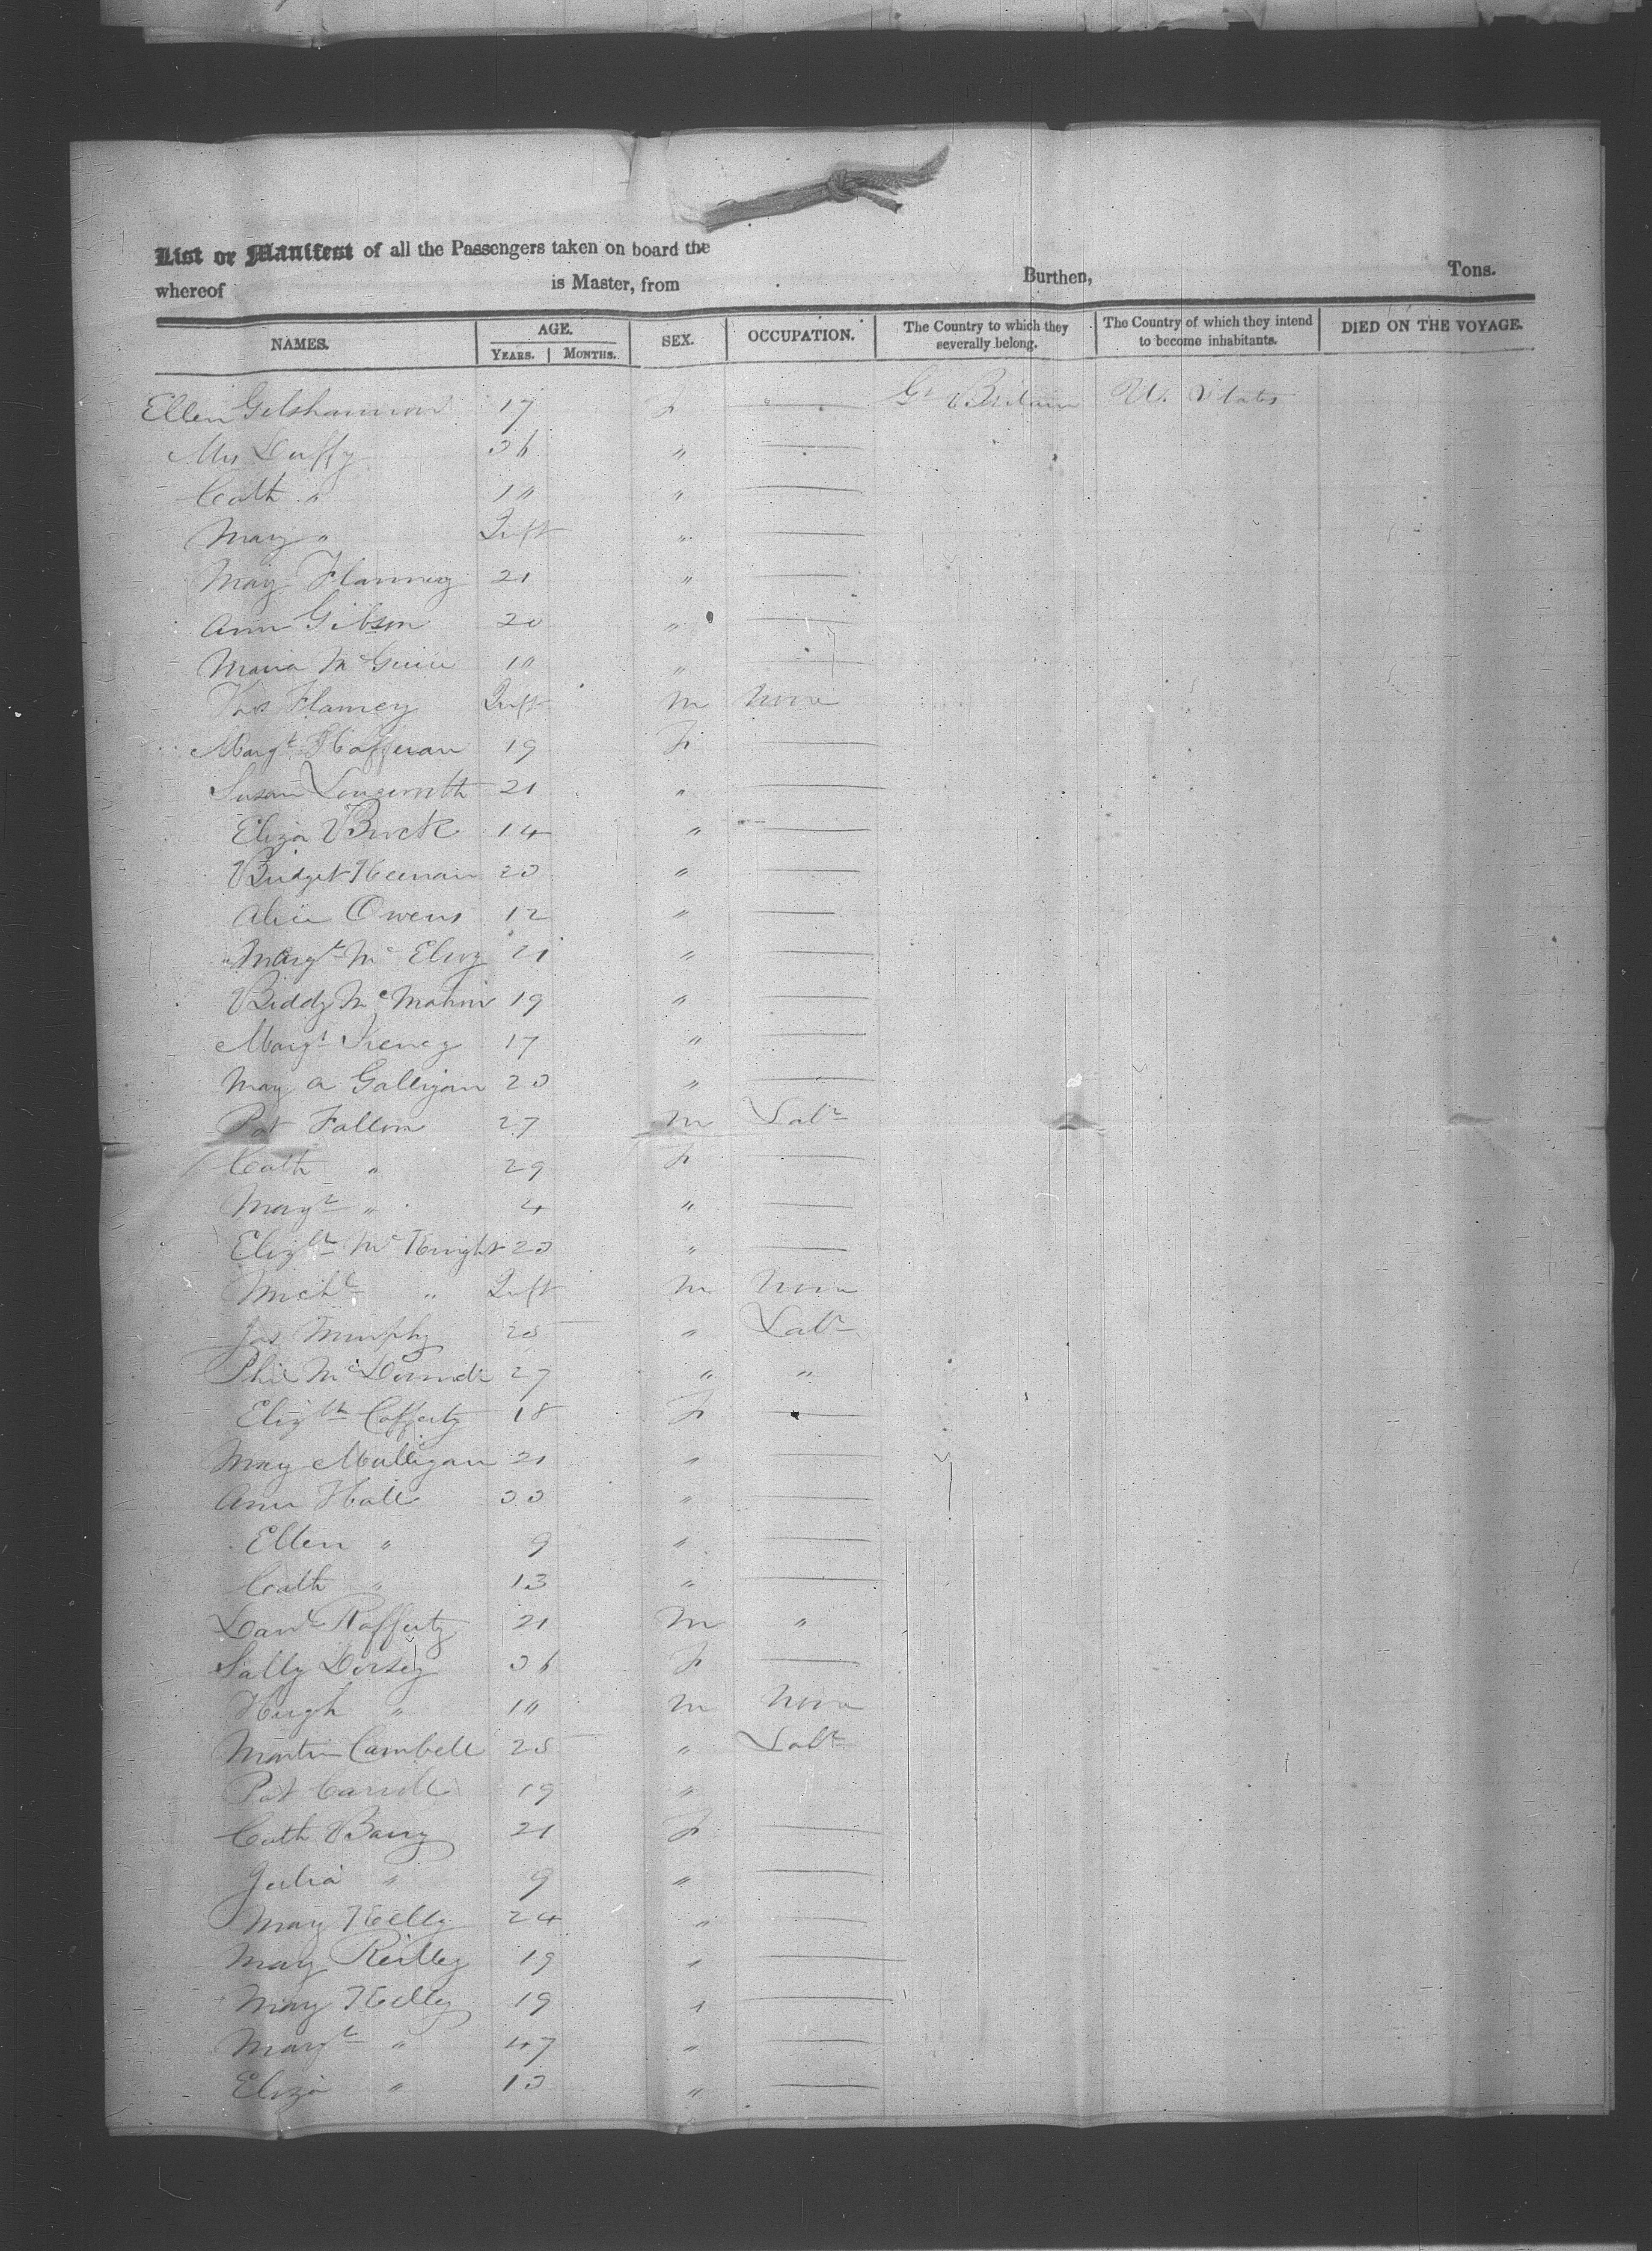 List or Manifest of all the Passengers taken on board the
whereof is Master, from Burthen, Tons.
NAMES. AGE. YEARS. MONTHS. SEX. OCCUPATION. The Country to which they severally belong. The Country of which they intend to become inhabitants. DIED ON THE VOYAGE.
Ellen Gelshannon 17 F — Gt Britain U. States
Mrs Duffy 36 " —
Cath " 10 " —
Mary " Inft " —
Mary Flannery 21 " —
Ann Gibson 20 " —
Maria McGuire 10 " —
Thos Flannery Inft M None
Margt Hefferan 19 F —
Susan Longworth 21 " —
Eliza Buck 14 " —
Bridget Keenan 20 " —
Alice Owens 12 " —
Margt McElroy 21 " —
Biddy McMahon 19 " —
Margt 17 " —
Mary A Galligan 20 " —
Pat Fallon 27 M Labr
Cath " 29 F —
Margt " 4 " —
Elizth McKnight 20 " —
Michl " Inft M None
Jas Murphy 25 " Labr
Phil 27 " "
Elizth Cafferty 18 F —
Mary Mulligan 21 " —
Ann Hall 30 " —
Ellen " 9 " —
Cath " 13 " —
Danl Rafferty 21 M "
Sally Dorsey 36 F —
Hugh " 10 M None
Martin Cambell 25 " Labr
Pat Carroll 19 "
Cath Barry 21 F —
Julia " 9 " —
Mary Kelly 24 " —
Mary Reilley 19 " —
Mary Kelly 19 " —
Margt " 47 " —
Eliza " 13 " —